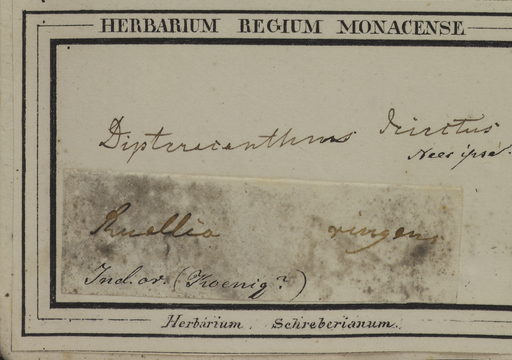 HERBARIUM REGIUM MONACENSE
Dipteracanthus dejectus
Nees ipse.
Ruellia ringens
Ind. or. (Koenig?)
Herbarium Schreberianum.